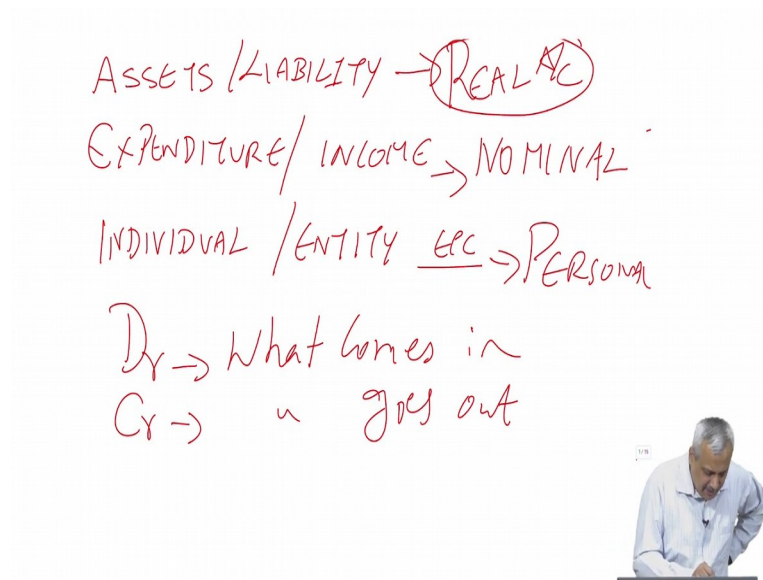 ASSETS/LIABILITY → REAL A/C
EXPENDITURE/ INCOME → NOMINAL
INDIVIDUAL /ENTITY ETC → PERSONAL
Dr → What Comes in
Cr → " goes out
1/18